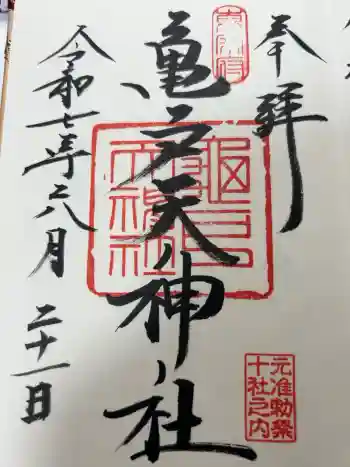 奉拝
亀戸天神社
令和七年六月二十一日
東宰府
元准勅祭
十社之内